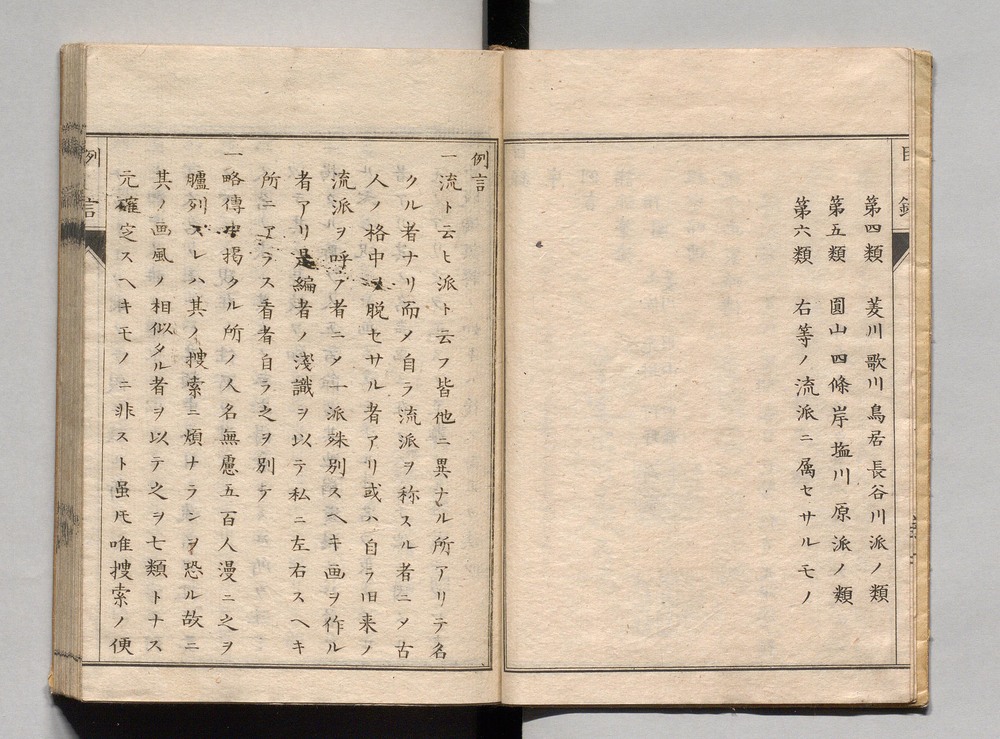 第四類　菱川歌川鳥居長谷川派ノ類
第五類　圓山四條岸塩川原派ノ類
第六類　右等ノ流派ニ属セサルモノ
例言
一流ト云ヒ派ト云フ皆他ニ異ナル所アリテ名
クル者ナリ而〆自ラ流派ヲ称スル者ニ〆古
人ノ格中ヲ脱セサル者アリ或ハ自ラ旧来ノ
流派ヲ呼フ者ニ〆一派殊別スヘキ画ヲ作ル
者アリ是編者ノ淺識ヲ以テ私ニ左右スヘキ
所ニアラス看者自ラ之ヲ別テ
一略傳中掲クル所ノ人名無慮五百人漫ニ之ヲ
臚列スレハ其ノ捜索ニ煩ナランヲ恐ル故ニ
其ノ画風ノ相似タル者ヲ以テ之ヲ七類トナス
元確定スヘキモノニ非スト虽𪜈唯捜索ノ便
例言